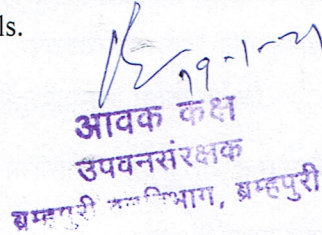 ls.
19-1-21
आवक कक्ष
उपवनसंरक्षक
ब्रम्हपुरी वनविभाग, ब्रम्हपुरी